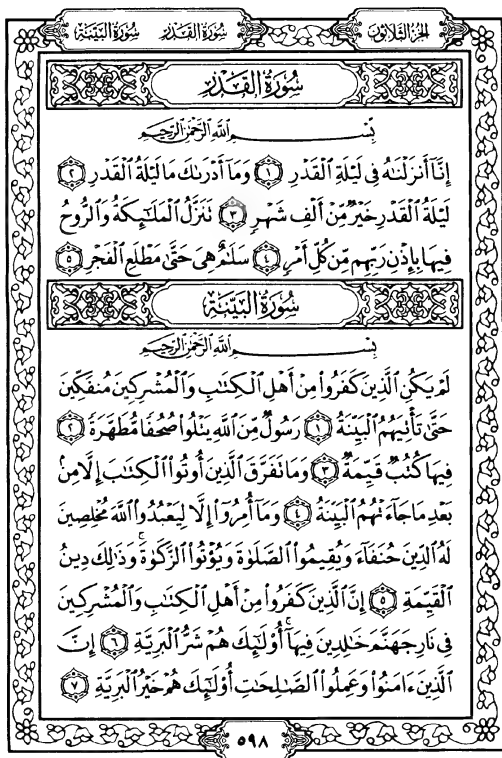 الجزء الثلاثون سورة القدر سورة البينة
سُورَةُ الْقَدْرِ
بِسْمِ اللَّهِ الرَّحْمَٰنِ الرَّحِيمِ
إِنَّآ أَنزَلْنَٰهُ فِى لَيْلَةِ ٱلْقَدْرِ ١ وَمَآ أَدْرَىٰكَ مَا لَيْلَةُ ٱلْقَدْرِ ٢
لَيْلَةُ ٱلْقَدْرِ خَيْرٌ مِّنْ أَلْفِ شَهْرٍ ٣ تَنَزَّلُ ٱلْمَلَٰٓئِكَةُ وَٱلرُّوحُ
فِيهَا بِإِذْنِ رَبِّهِم مِّن كُلِّ أَمْرٍ ٤ سَلَٰمٌ هِىَ حَتَّىٰ مَطْلَعِ ٱلْفَجْرِ ٥
سُورَةُ الْبَيِّنَةِ
بِسْمِ اللَّهِ الرَّحْمَٰنِ الرَّحِيمِ
لَمْ يَكُنِ ٱلَّذِينَ كَفَرُوا۟ مِنْ أَهْلِ ٱلْكِتَٰبِ وَٱلْمُشْرِكِينَ مُنفَكِّينَ
حَتَّىٰ تَأْتِيَهُمُ ٱلْبَيِّنَةُ ١ رَسُولٌ مِّنَ ٱللَّهِ يَتْلُوا۟ صُحُفًا مُّطَهَّرَةً ٢
فِيهَا كُتُبٌ قَيِّمَةٌ ٣ وَمَا تَفَرَّقَ ٱلَّذِينَ أُوتُوا۟ ٱلْكِتَٰبَ إِلَّا مِنۢ
بَعْدِ مَا جَآءَتْهُمُ ٱلْبَيِّنَةُ ٤ وَمَآ أُمِرُوٓا۟ إِلَّا لِيَعْبُدُوا۟ ٱللَّهَ مُخْلِصِينَ
لَهُ ٱلدِّينَ حُنَفَآءَ وَيُقِيمُوا۟ ٱلصَّلَوٰةَ وَيُؤْتُوا۟ ٱلزَّكَوٰةَ ۚ وَذَٰلِكَ دِينُ
ٱلْقَيِّمَةِ ٥ إِنَّ ٱلَّذِينَ كَفَرُوا۟ مِنْ أَهْلِ ٱلْكِتَٰبِ وَٱلْمُشْرِكِينَ
فِى نَارِ جَهَنَّمَ خَٰلِدِينَ فِيهَآ ۚ أُو۟لَٰٓئِكَ هُمْ شَرُّ ٱلْبَرِيَّةِ ٦ إِنَّ
ٱلَّذِينَ ءَامَنُوا۟ وَعَمِلُوا۟ ٱلصَّٰلِحَٰتِ أُو۟لَٰٓئِكَ هُمْ خَيْرُ ٱلْبَرِيَّةِ ٧
٥٩٨